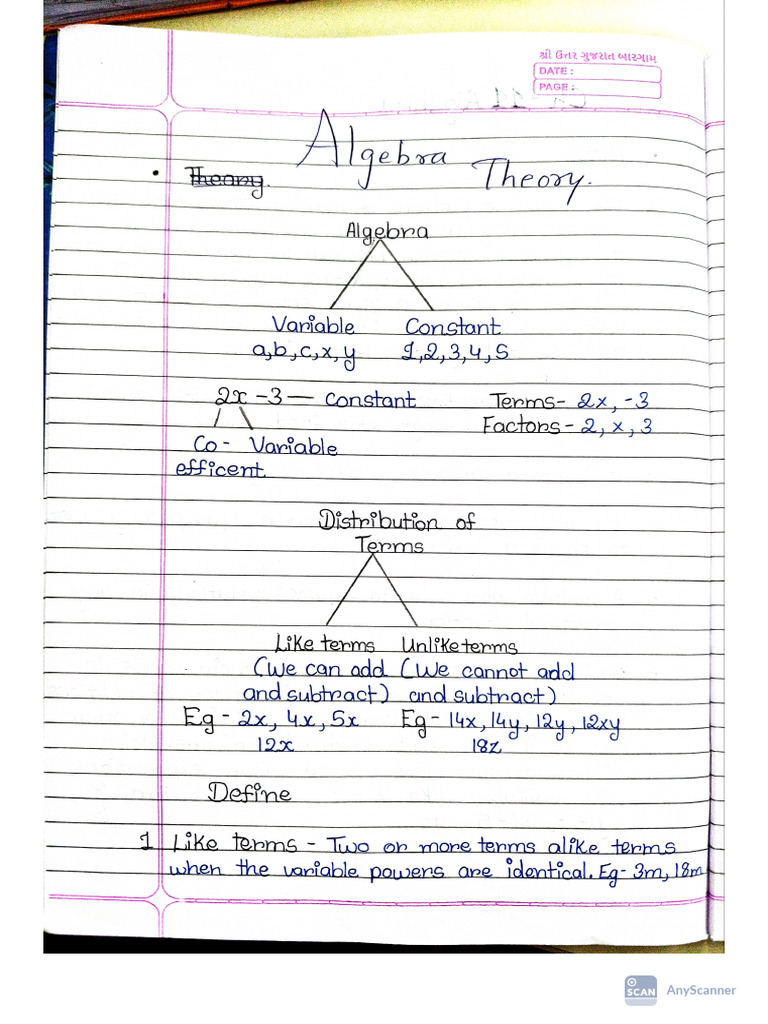 શ્રી ઉત્તર ગુજરાત બારગામ
DATE :
PAGE :
Algebra Theory.
• Theory.
Algebra
Variable Constant
a,b,c,x,y 1,2,3,4,5
2x -3 — Constant Terms- 2x, -3
Factors - 2, x, 3
Co - Variable
efficent
Distribution of
Terms
Like terms Unlike terms
(We can add (We cannot add
and subtract) and subtract)
Eg - 2x, 4x, 5x Eg- 14x, 14y, 12y, 12xy
12x 18z
Define
1 Like terms - Two or more terms alike terms
when the variable powers are identical. Eg- 3m, 18m
SCAN AnyScanner